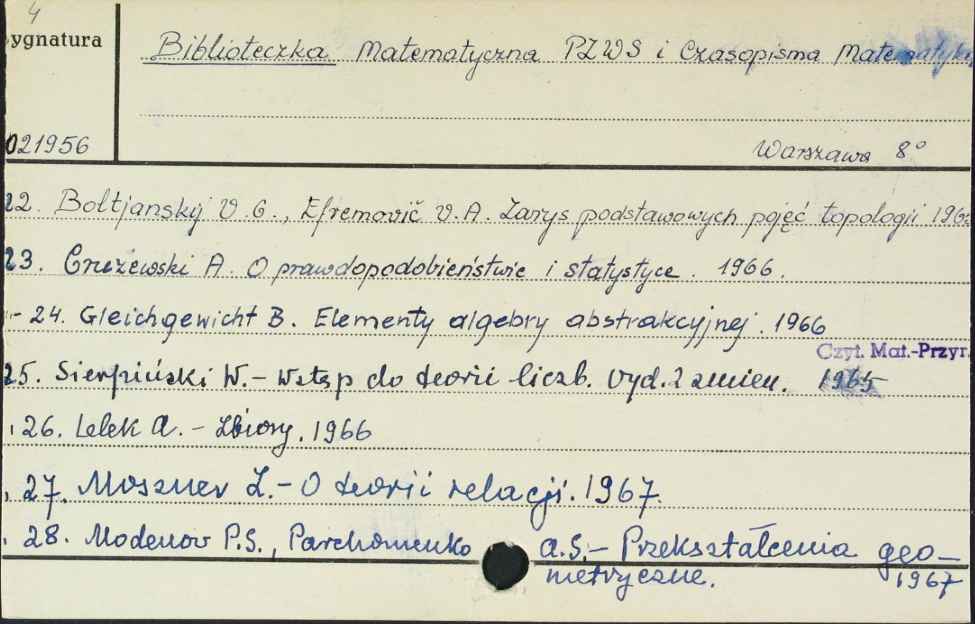 4
ygnatura
Biblioteczka Matematyczna PZWS i Czasopisma Matematyka
021956
Warszawa 8°
22. Boltjanskij V.G., Efremovič V.A. Zarys podstawowych pojęć topologii 196
23. Grużewski A. O prawdopodobieństwie i statystyce. 1966.
- 24. Gleichgewicht B. Elementy algebry abstrakcyjnej. 1966
Czyt. Mat.-Przyr.
25. Sierpiński W. - Wstęp do teorii liczb. Wyd. 2 zmien. 1965
26. Lelek A. - Zbiory. 1966
27. Moszner Z. - O teorii relacji. 1967.
28. Modenov P.S., Parchomenko A.S. - Przekształcenia geo-
metryczne. 1967